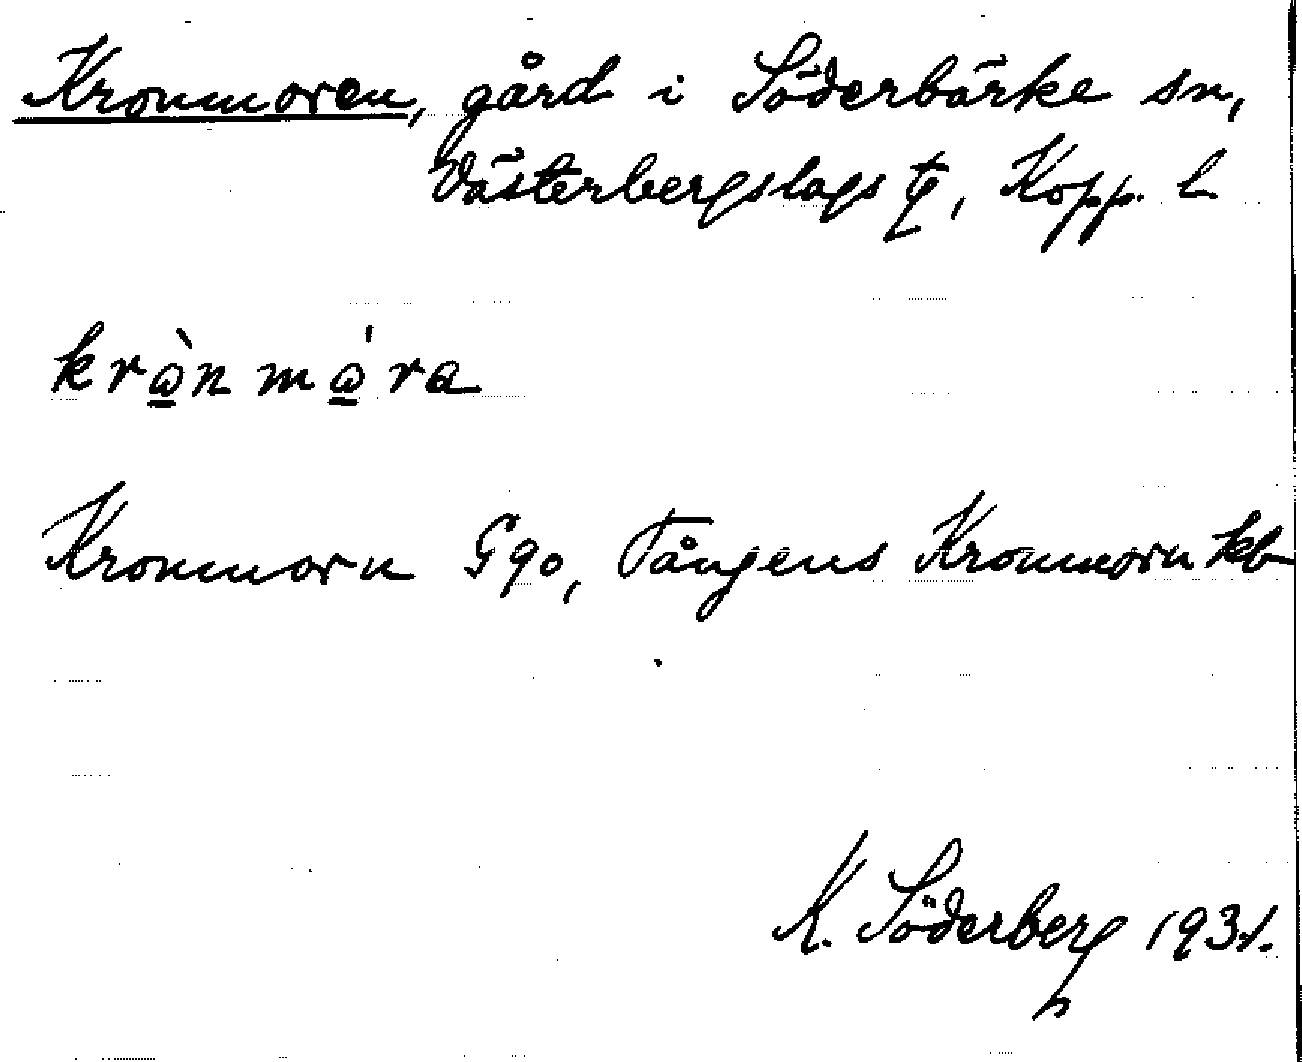 Kronmoren, gård i Söderbärke sn,
Västerbergslags tg, Kopp. l
krὼ̲n mώ̲ra
Kronmorn G 90, Tångens Kronmorn kb
K. Söderberg 1931.